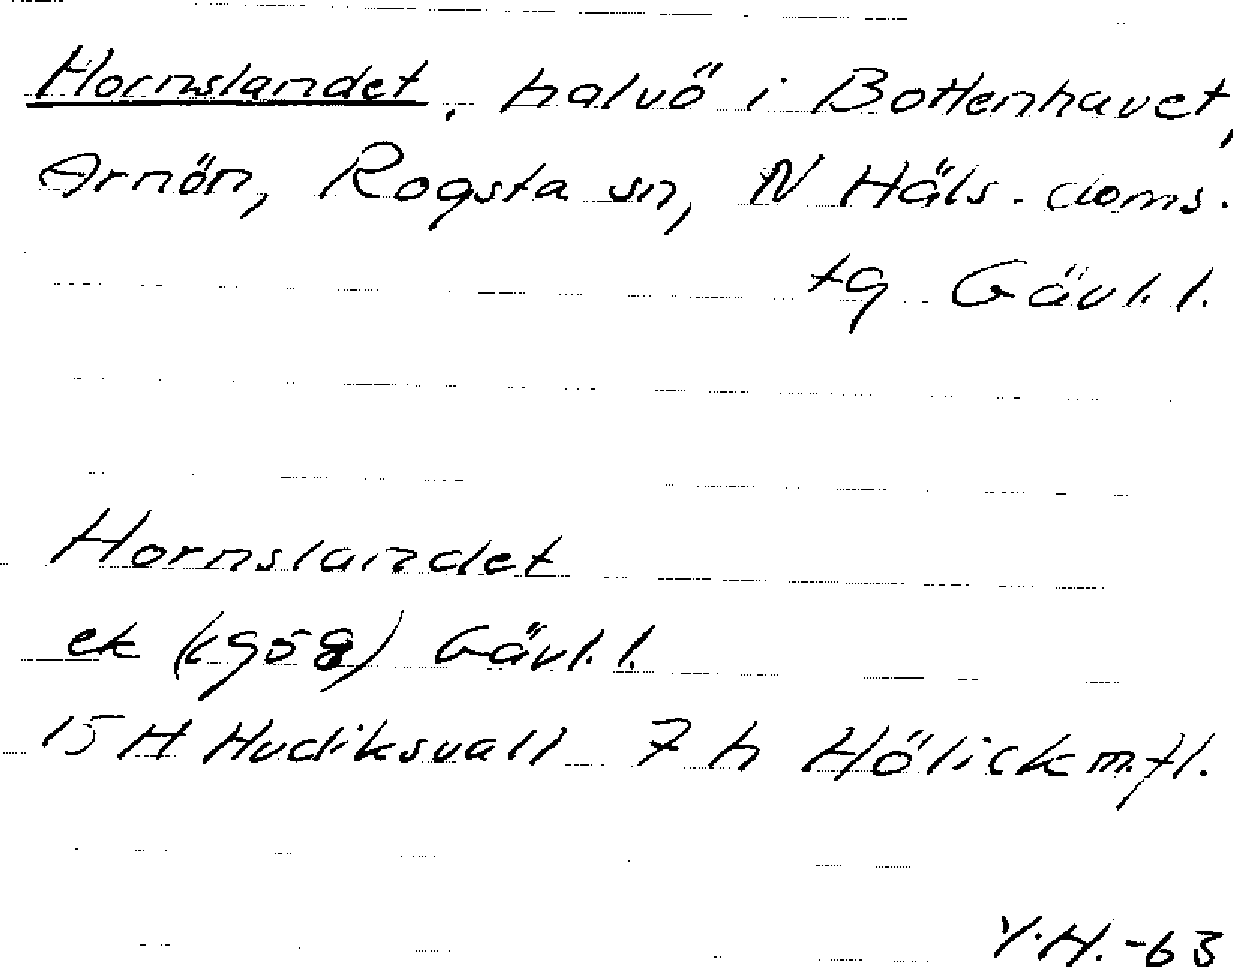 Hornslandet, halvö i Bottenhavet,
Arnön, Rogsta sn, N Häls. doms.
tg Gävl. l.
Hornslandet
ek (1958) Gävl. l.
15 H Hudiksvall 7 h Hölick m.fl.
Y.H.-63